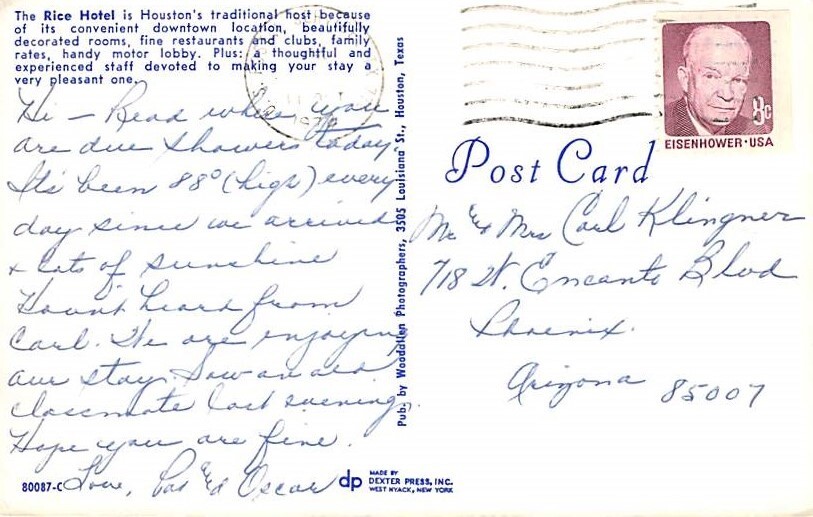 The Rice Hotel is Houston's traditional host because
of its convenient downtown location, beautifully
decorated rooms, fine restaurants and clubs, family
rates, handy motor lobby. Plus: a thoughtful and
experienced staff devoted to making your stay a
very pleasant one.
Hi - Read where you
are due showers today
It's been 88° (high) every
day since we arrived
& lots of sunshine
Havnt heard from
Carl. We are enjoying
our stay. Saw an old
classmate last evening.
Hope you are fine.
Love, and Oscar
80087-C
Pub. by Woodallen Photographers, 3505 Louisiana St., Houston, Texas
dp MADE BY
DEXTER PRESS, INC.
WEST NYACK, NEW YORK
8c
EISENHOWER·USA
Post Card
Mr and Mrs Carl Klingner
718 W. Encanto Blvd
Phoenix.
Arizona 85007